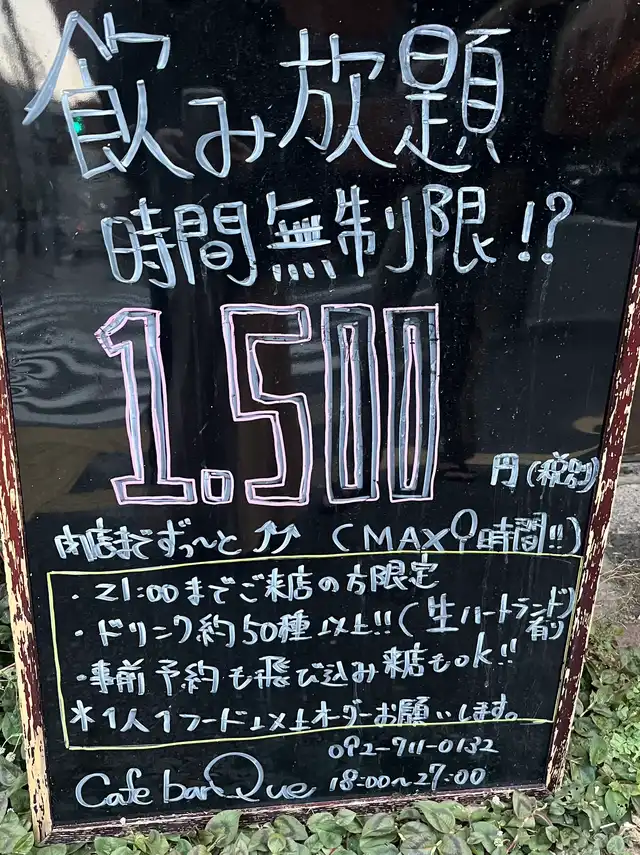 飲み放題
時間無制限!?
1.500
円(税別)
閉店までずっ〜と ⤴⤴ (MAX9時間!!)
・21:00までご来店の方限定
・ドリンク約50種以上!!(生ハートランド有り)
・事前予約も飛び込み来店もOK!!
*1人1フード以上オーダーお願いします。
092-711-0132
Cafe bar Que 18:00〜27:00